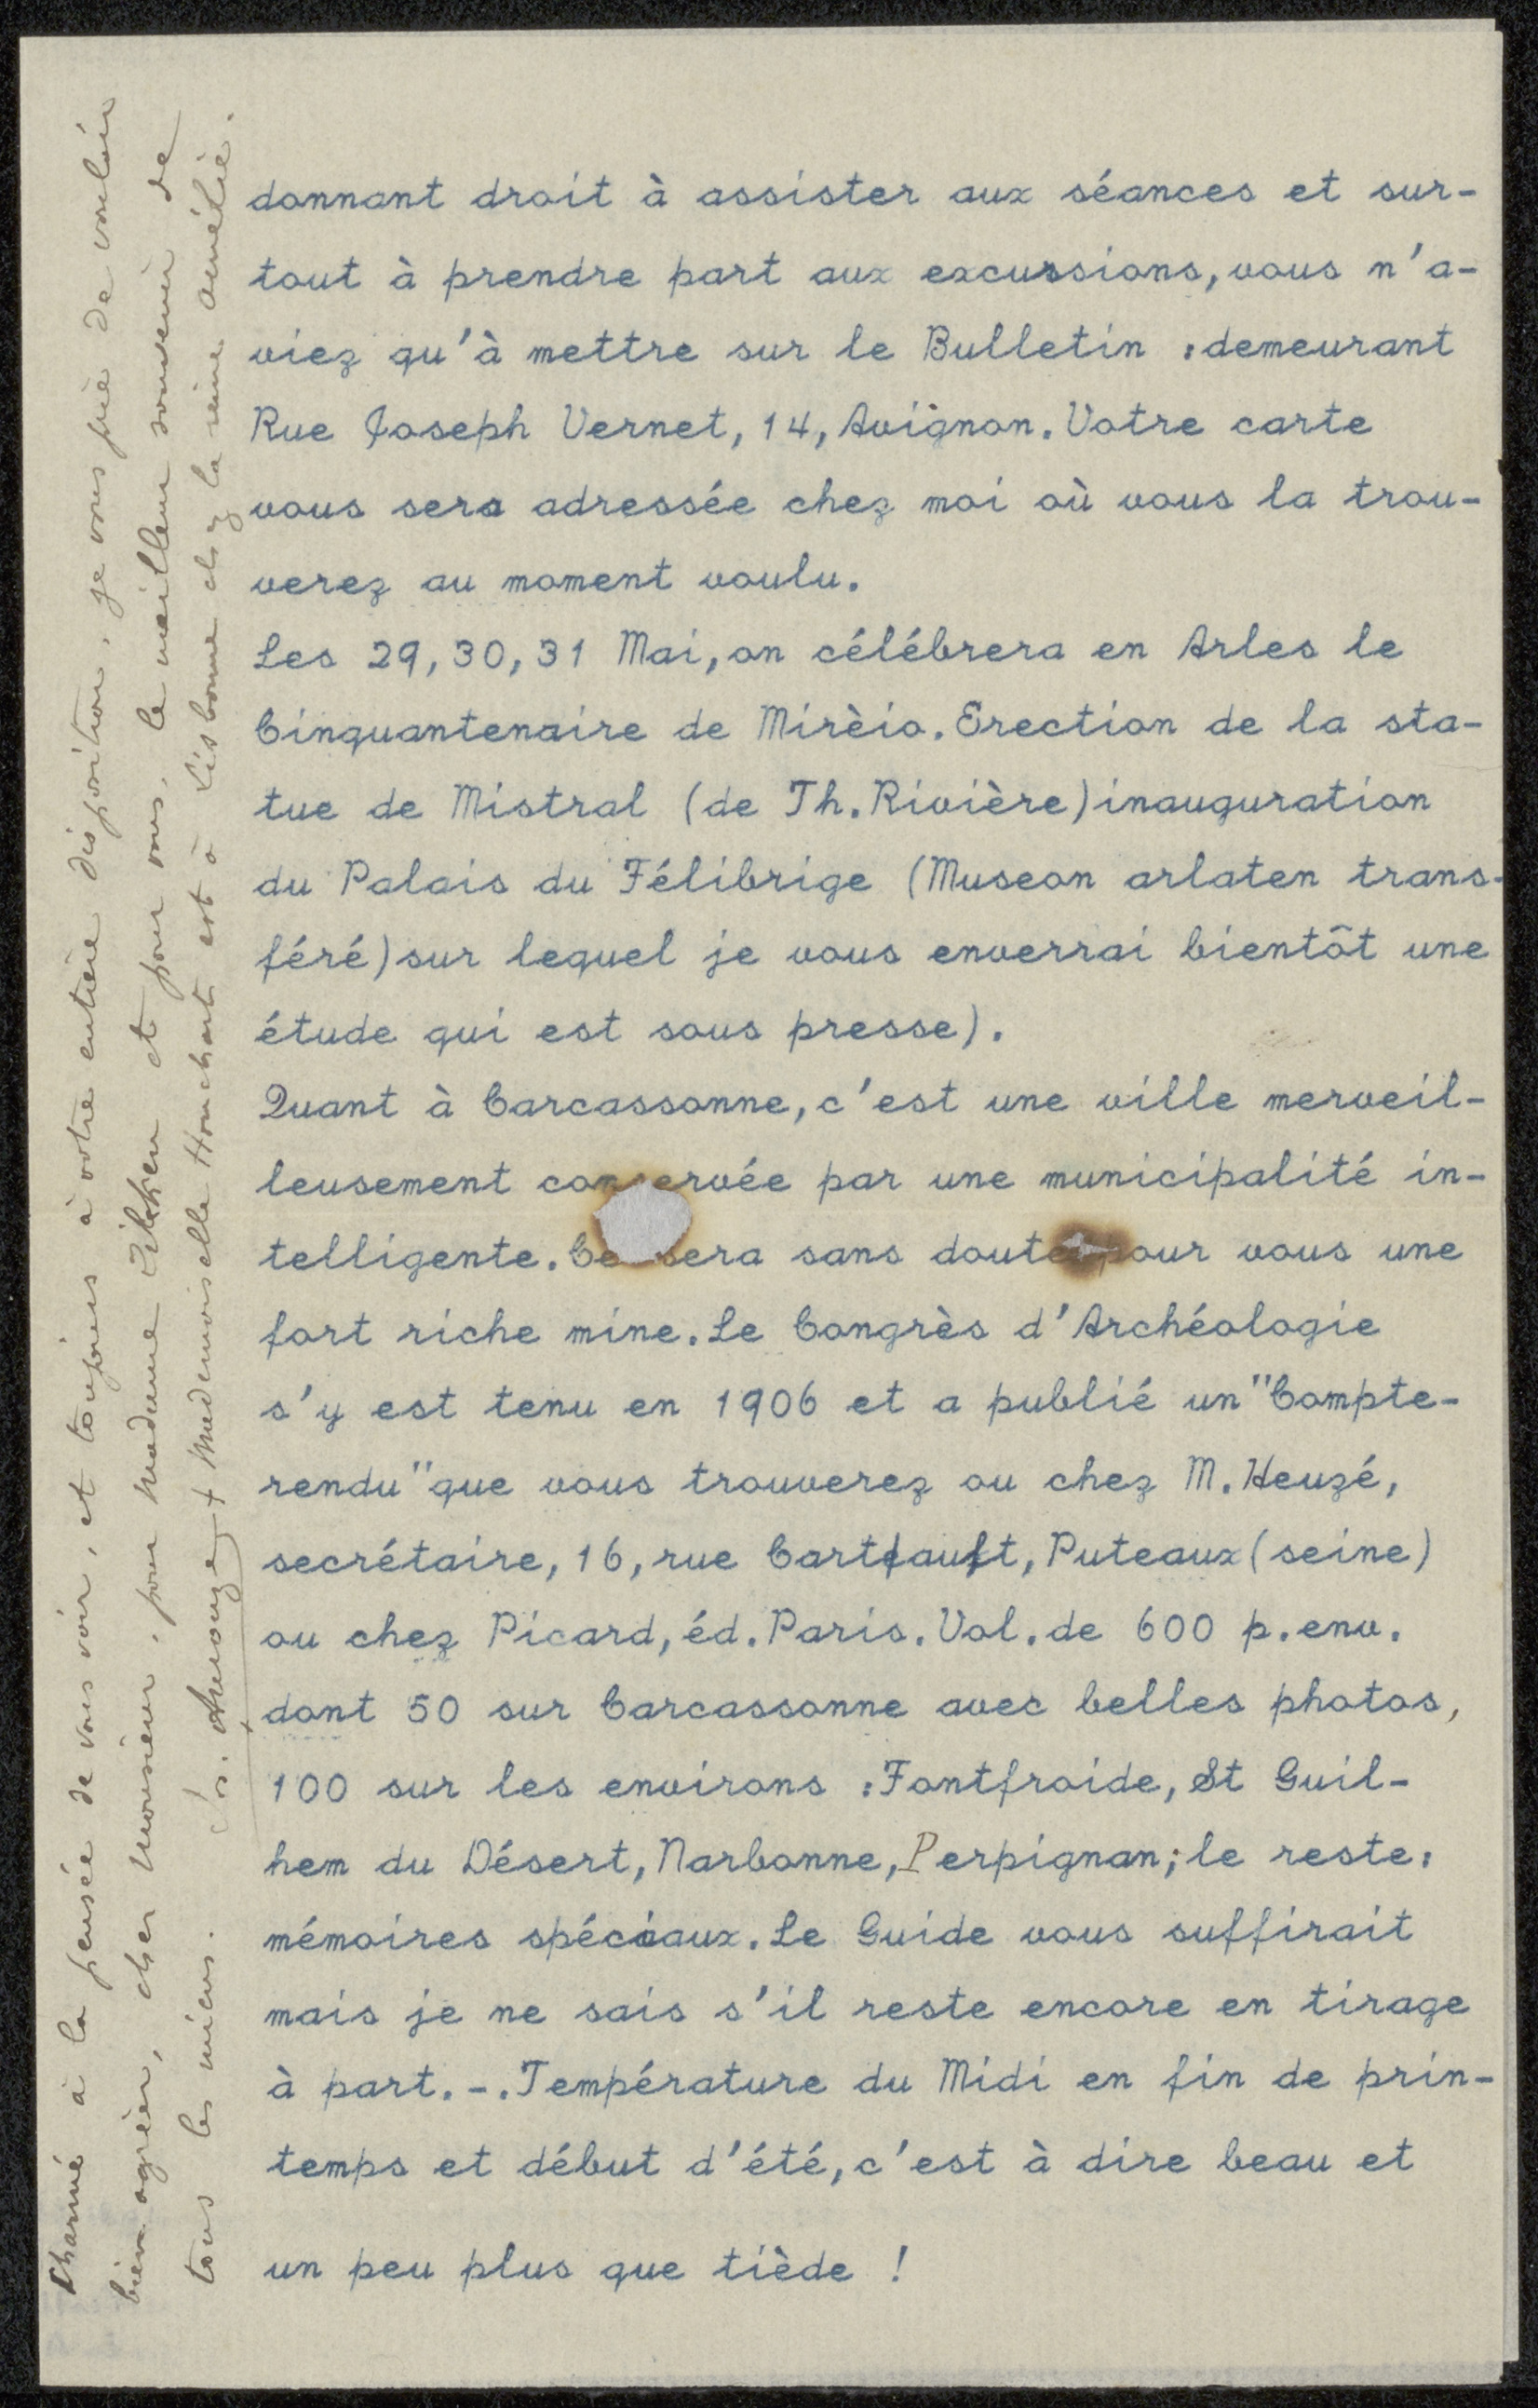 donnant droit à assister aux séances et sur-
tout à prendre part aux excursions, vous n'a-
viez qu'à mettre sur le Bulletin : demeurant
Rue Joseph Vernet, 14, Avignon. Votre carte
vous sera adressée chez moi où vous la trou-
verez au moment voulu.
Les 29, 30, 31 Mai, on célébrera en Arles le
Cinquantenaire de Mirèio. Erection de la sta-
tue de Mistral (de Th. Rivière) inauguration
du Palais du Félibrige (Museon arlaten trans-
féré) sur lequel je vous enverrai bientôt une
étude qui est sous presse).
Quant à Carcassonne, c'est une ville merveil-
leusement conservée par une municipalité in-
telligente. Ce sera sans doute pour vous une
fort riche mine. Le Congrès d'Archéologie
s'y est tenu en 1906 et a publié un "Compte-
rendu" que vous trouverez ou chez M. Heuzé,
secrétaire, 16, rue Puteaux (seine)
ou chez Picard, éd. Paris. Vol. de 600 p. env.
dont 50 sur Carcassonne avec belles photos,
100 sur les environs : Fontfroide, St Guil-
hem du Désert, Narbonne, Perpignan; le reste:
mémoires spéciaux. Le Guide vous suffirait
mais je ne sais s'il reste encore en tirage
à part. -. Température du Midi en fin de prin-
temps et début d'été, c'est à dire beau et
un peu plus que tiède !
Charmé à la pensée de vous voir, et toujours à votre entière disposition, je vous prie de vouloir
bien agréer, cher Monsieur, pour Madame Zilcken et pour vous, le meilleur souvenir de
tous les miens. + Mademoiselle Houchart est à Lisbonne chez la reine Amélie.